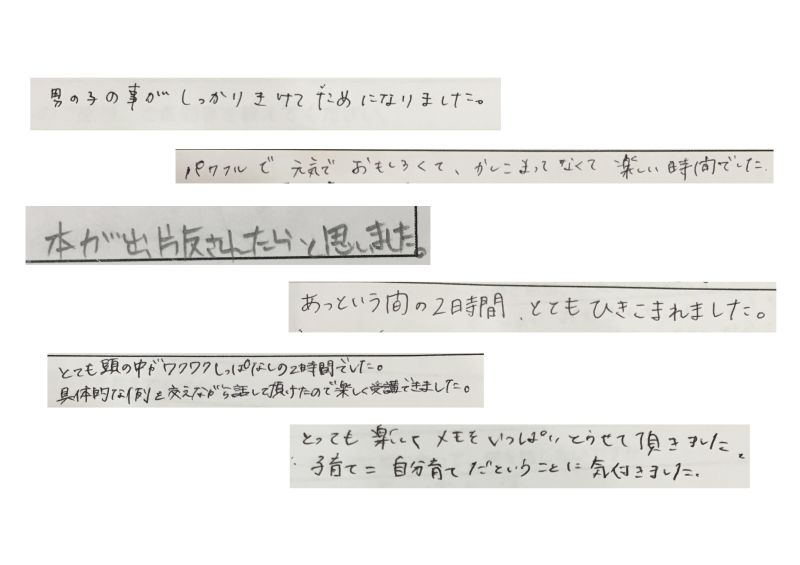 男の子の事がしっかりきけてためになりました。
パワフルで 元気で おもしろくて、かしこまってなくて 楽しい時間でした.
本が出版されたらと思いました。
あっという間の2時間、とてもひきこまれました。
とても頭の中がワクワクしっぱなしの2時間でした。
具体的な例を交えながら話して頂けたので楽しく受講できました。
とっても 楽しく メモを いっぱい とらせて 頂きました。
子育て= 自分育て だということに 気付きました.